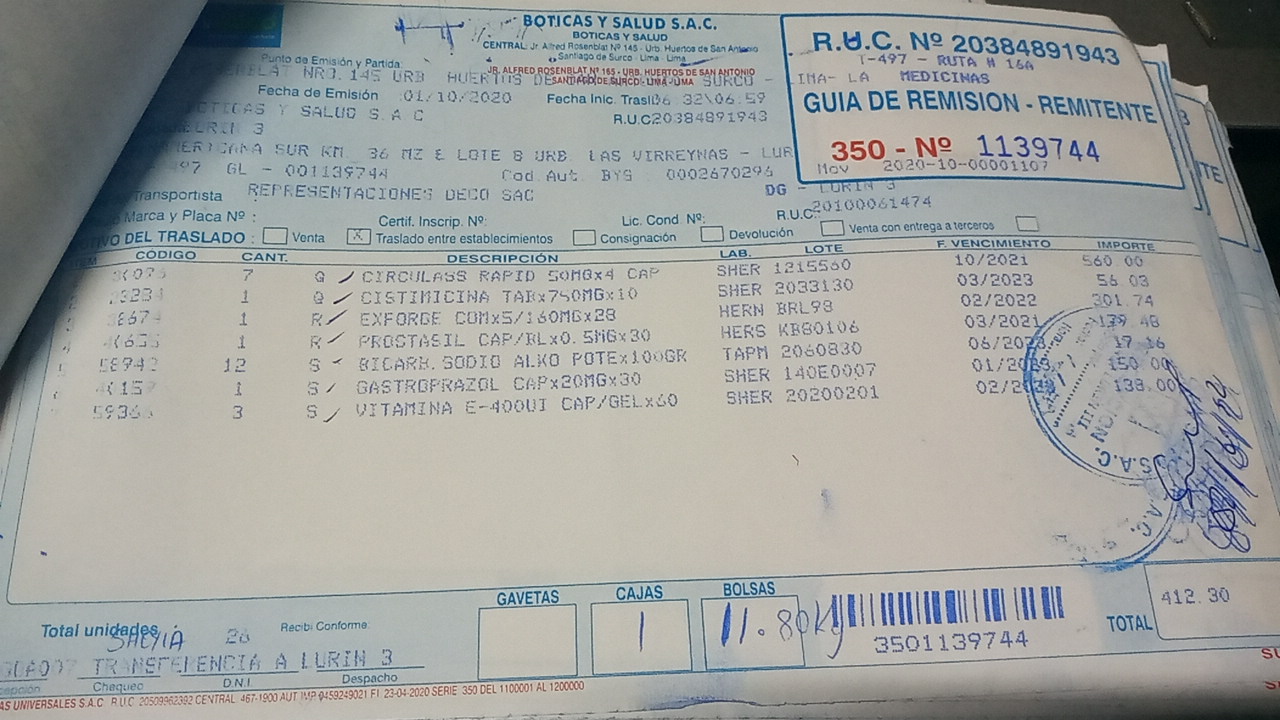 BOTICAS Y SALUD S.A.C.
BOTICAS Y SALUD
CENTRAL: Jr. Alfred Rosenblat Nº 145 - Urb. Huertos de San Antonio
Santiago de Surco - Lima - Lima
JR. ALFRED ROSENBLAT Nº 165 - URB. HUERTOS DE SAN ANTONIO
SANTIAGO DE SURCO - LIMA - LIMA
R.U.C. Nº 20384891943
T-497 - RUTA # 16A
MEDICINAS
GUIA DE REMISION - REMITENTE
350 - Nº 1139744
Mov 2020-10-00001107
Punto de Emisión y Partida:
NRO. 145 URB HUERTOS DE SURCO - LIMA- LA
Fecha de Emisión :01/10/2020 Fecha Inic. Trasl 06 32\06.59
BOTICAS Y SALUD S A C R.U.C 20384891943
LURIN 3
KM. 36 MZ E LOTE 8 URB. LAS VIRREYNAS - LUR
GL - 001139744 Cod.Aut. BYS 0002670296
DG - LURIN 3
Transportista REPRESENTACIONES DECO SAC
R.U.C. 20100061474
Marca y Placa Nº : Certif. Inscrip. Nº: Lic. Cond. Nº:
MOTIVO DEL TRASLADO : Venta X Traslado entre establecimientos Consignación Devolución Venta con entrega a terceros
CÓDIGO CANT. DESCRIPCIÓN LAB. LOTE F. VENCIMIENTO IMPORTE
7 G CIRCULASS RAPID 50MGx4 CAP SHER 1215560 10/2021 560 00
1 G CISTIMICINA TABx750MGx10 SHER 2033130 03/2023 56.03
1 R EXFORGE COMx5/160MGx28 HERN BRL98 02/2022 301.74
1 R PROSTASIL CAP/BLx0.5MGx30 HERS KB80106 03/2021 139 48
58942 12 S BICARB.SODIO ALKO POTEx100GR TAPM 2060830 17.16
1 S GASTROPRAZOL CAPx20MGx30 SHER 140E0007 150 00
3 S VITAMINA E-400UI CAP/GELx60 SHER 20200201 138.00
S.A.C.
GAVETAS CAJAS BOLSAS
1 11.80Kg
3501139744
TOTAL 412.30
Total unidades 26 Recibi Conforme:
TRANSFERENCIA A LURIN 3
Chequeo D.N.I. Despacho
UNIVERSALES S.A.C R.U.C. 20509962392 CENTRAL: 467-1900 AUT IMP 0459249021 F.I. 23-04-2020 SERIE 350 DEL 1100001 AL 1200000